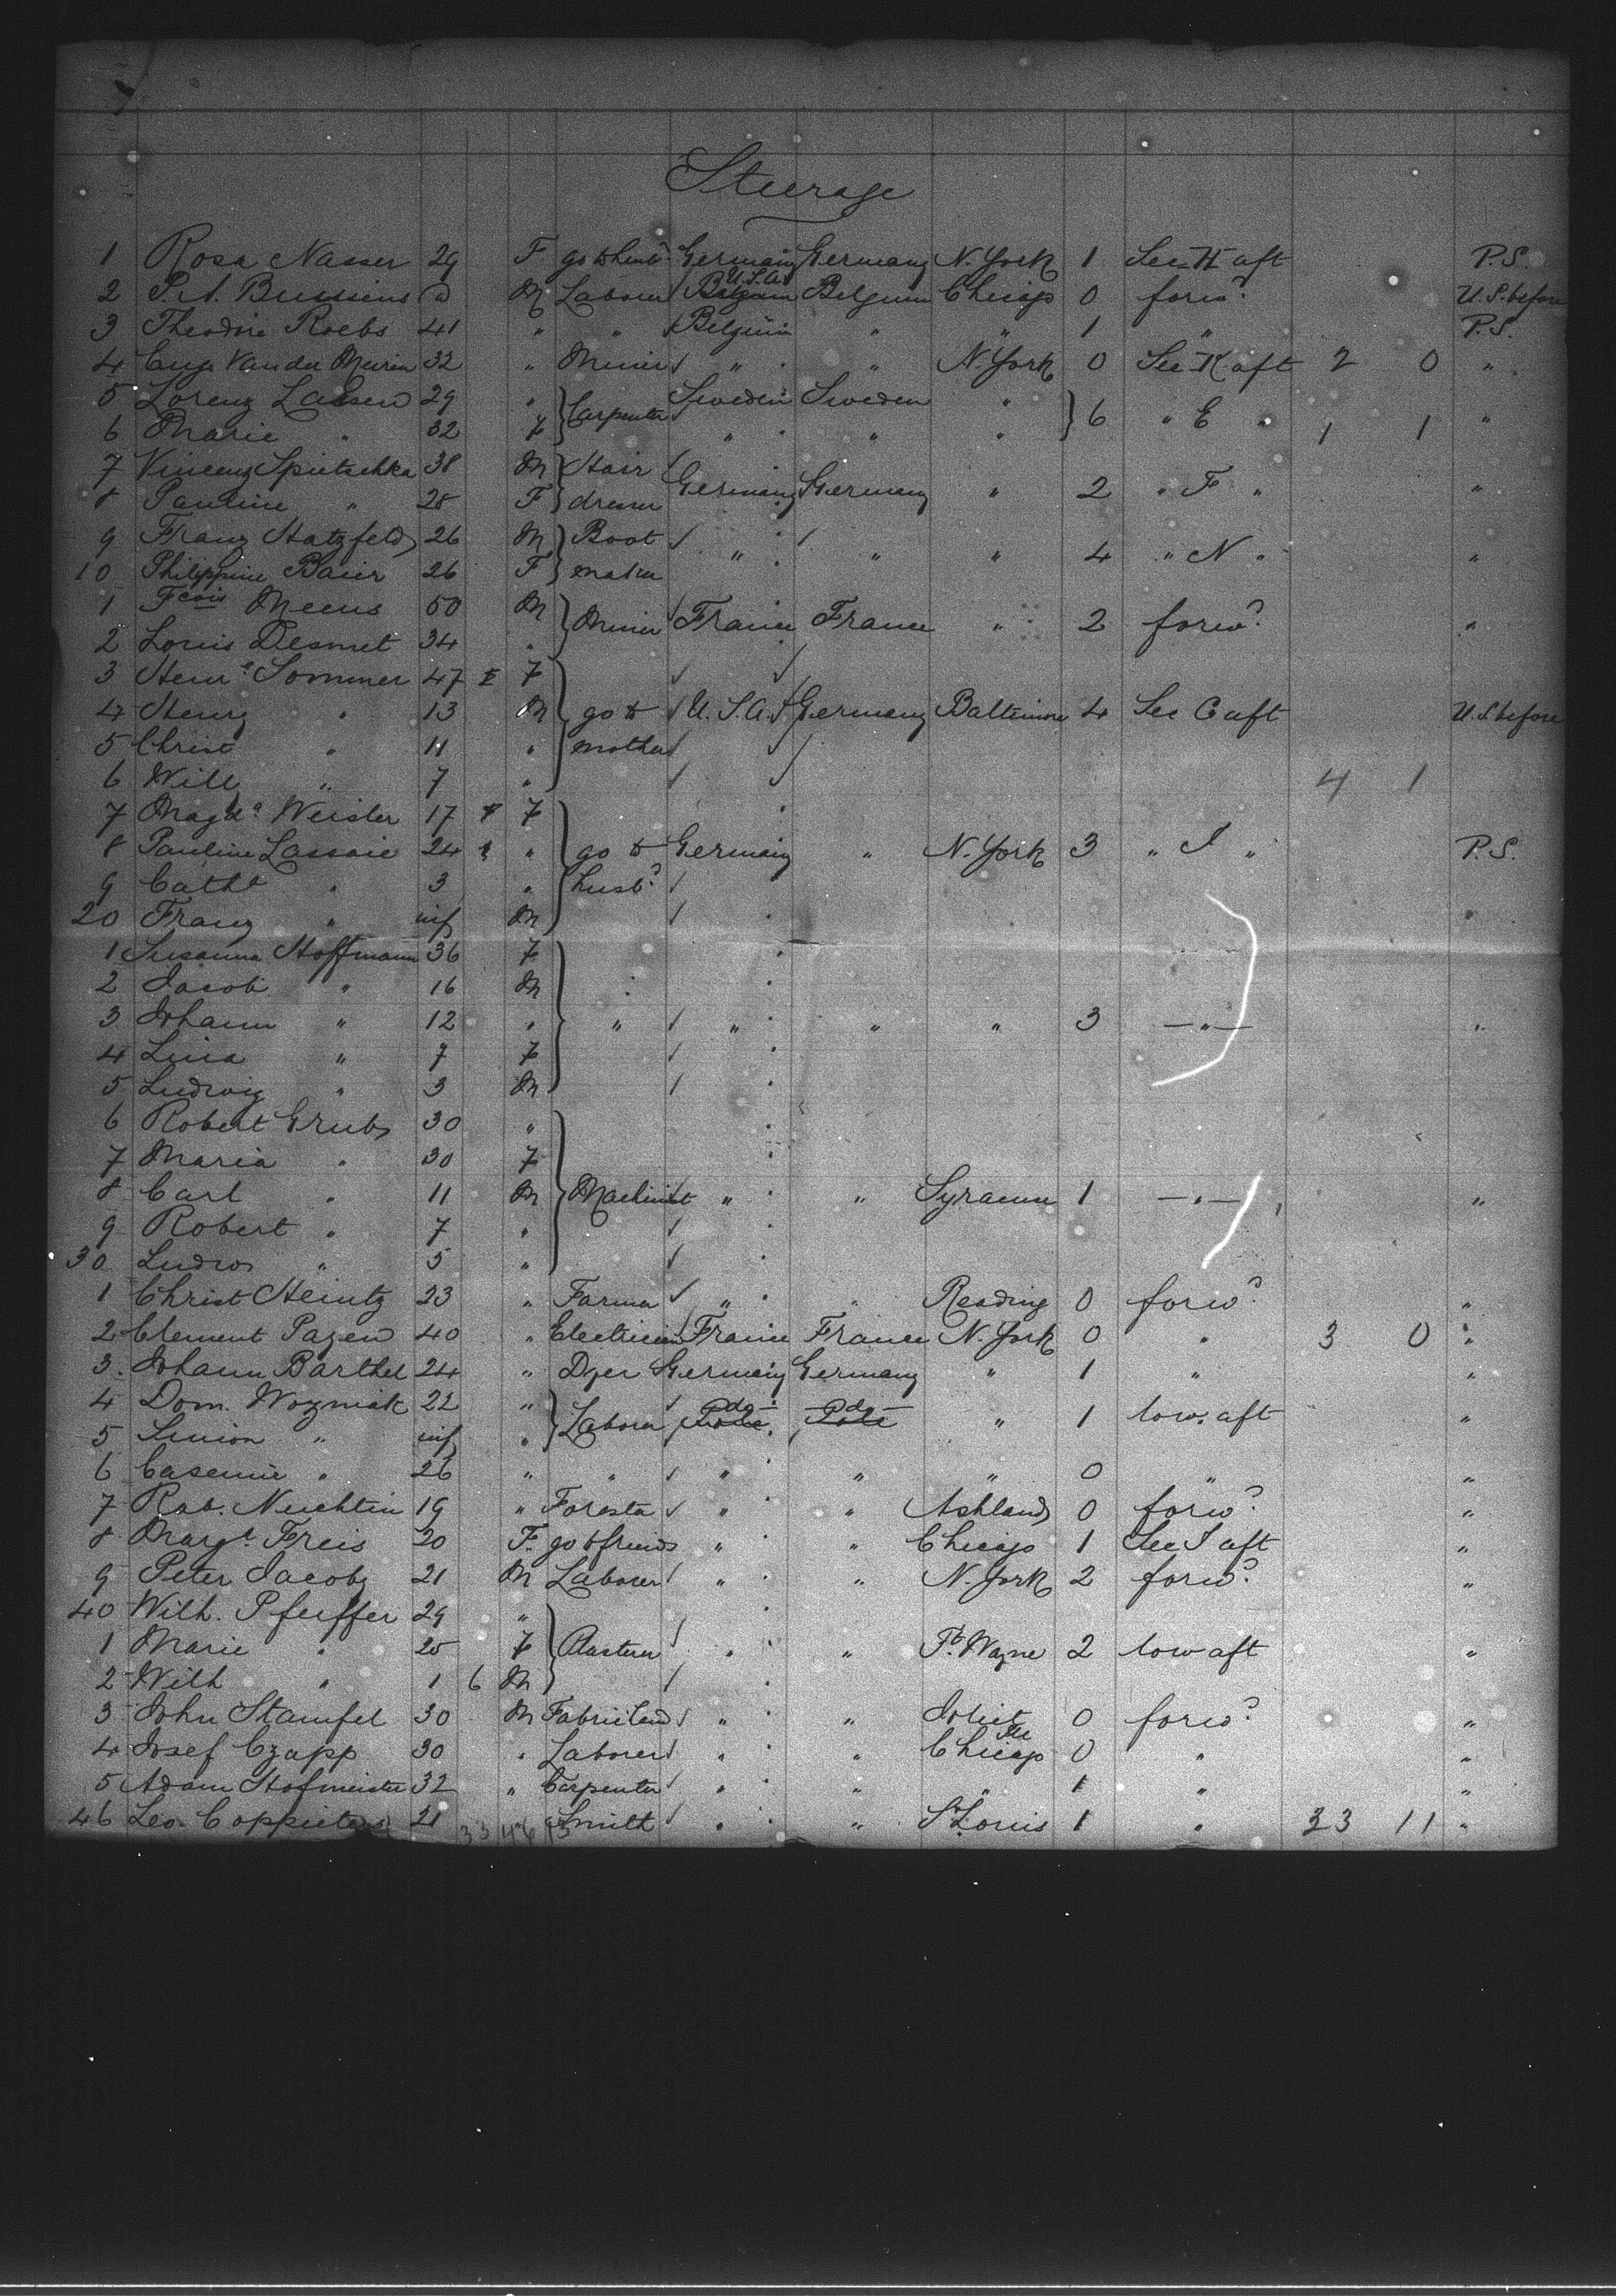 Steerage
1 Rosa Nasser 29 F go to husb. Germany Germany N. York 1 Sec H aft P.S.
2 P. A. Bussiens M Laborer U.S.A. Belgium Belgium Chicago 0 forwd U.S. before
3 Theodore Roebs 41 " " Belgium " " 1 " P.S.
4 Eug. Van der Meiren 32 " Miner " " N. York 0 Sec K aft 2 0 "
5 Lorenz Lassen 29 " Carpenter Sweden Sweden " 6 " E " "
6 Marie " 32 F " " " 1 1
7 Vincenz Spietschka 38 M Hair
8 Pauline " 28 F dresser Germany Germany " 2 " F " "
9 Franz Hatzfeld 26 M Boot " " " 4 " N " "
10 Philippine Baier 26 F maker
1 Fcois Meeus 50 M Miner France France " 2 forwd "
2 Louis Desmet 34 "
3 Henre Sommer 47 F
4 Henry " 13 M go to U.S.A. Germany Baltimore 4 Sec C aft U.S. before
5 Christ " 11 " mother
6 Will " 7 " 4 1
7 Magda Weisler 17 F
8 Pauline Lassaie 24 " go to Germany " N. York 3 " I " P.S.
9 Cathe " 3 " husbd
20 Franz " inf M "
1 Susanna Hoffmann 36 F
2 Jacob " 16 M
3 Johann " 12 " " " " " 3 — " — "
4 Lina " 7 F
5 Ludwig " 3 M
6 Robert Grub 30 "
7 Maria " 30 F
8 Carl " 11 M Machinist " " Syracuse 1 — " — "
9 Robert " 7 "
30 Ludw " 5 "
1 Christ Heintz 23 " Farmer " " Reading 0 forwd "
2 Clement Pazen 40 " Electrician France France N. York 0 " 3 0 "
3. Johann Barthel 24 " Dyer Germany Germany " 1 " "
4 Dom. Wozniak 22 " Laborer do Pole do Pole " 1 low. aft "
5 Simion " inf "
6 Casemir " 26 " " " " " 0 " "
7 Rob. Neichtin 19 " Forester " " Ashland 0 forwd "
8 Margt Freis 20 F. go to friends " " Chicago 1 Sec I aft "
9 Peter Jacoby 21 M Laborer " " N. York 2 forwd "
40 Wilh. Pfeiffer 29 "
1 Marie " 25 F Plasterer " " Ft. Wayne 2 low aft "
2 Wilh " 1 6 M
3 John Stampfel 30 M " " Joliet Ill 0 forwd "
4 Josef Czapp 30 " Laborer " " Chicago 0 " "
5 Adam Hofmeister 32 " Carpenter " " " 1 " "
46 Leo. Coppieters 21 " Smith " " St. Louis 1 " 23 11 "